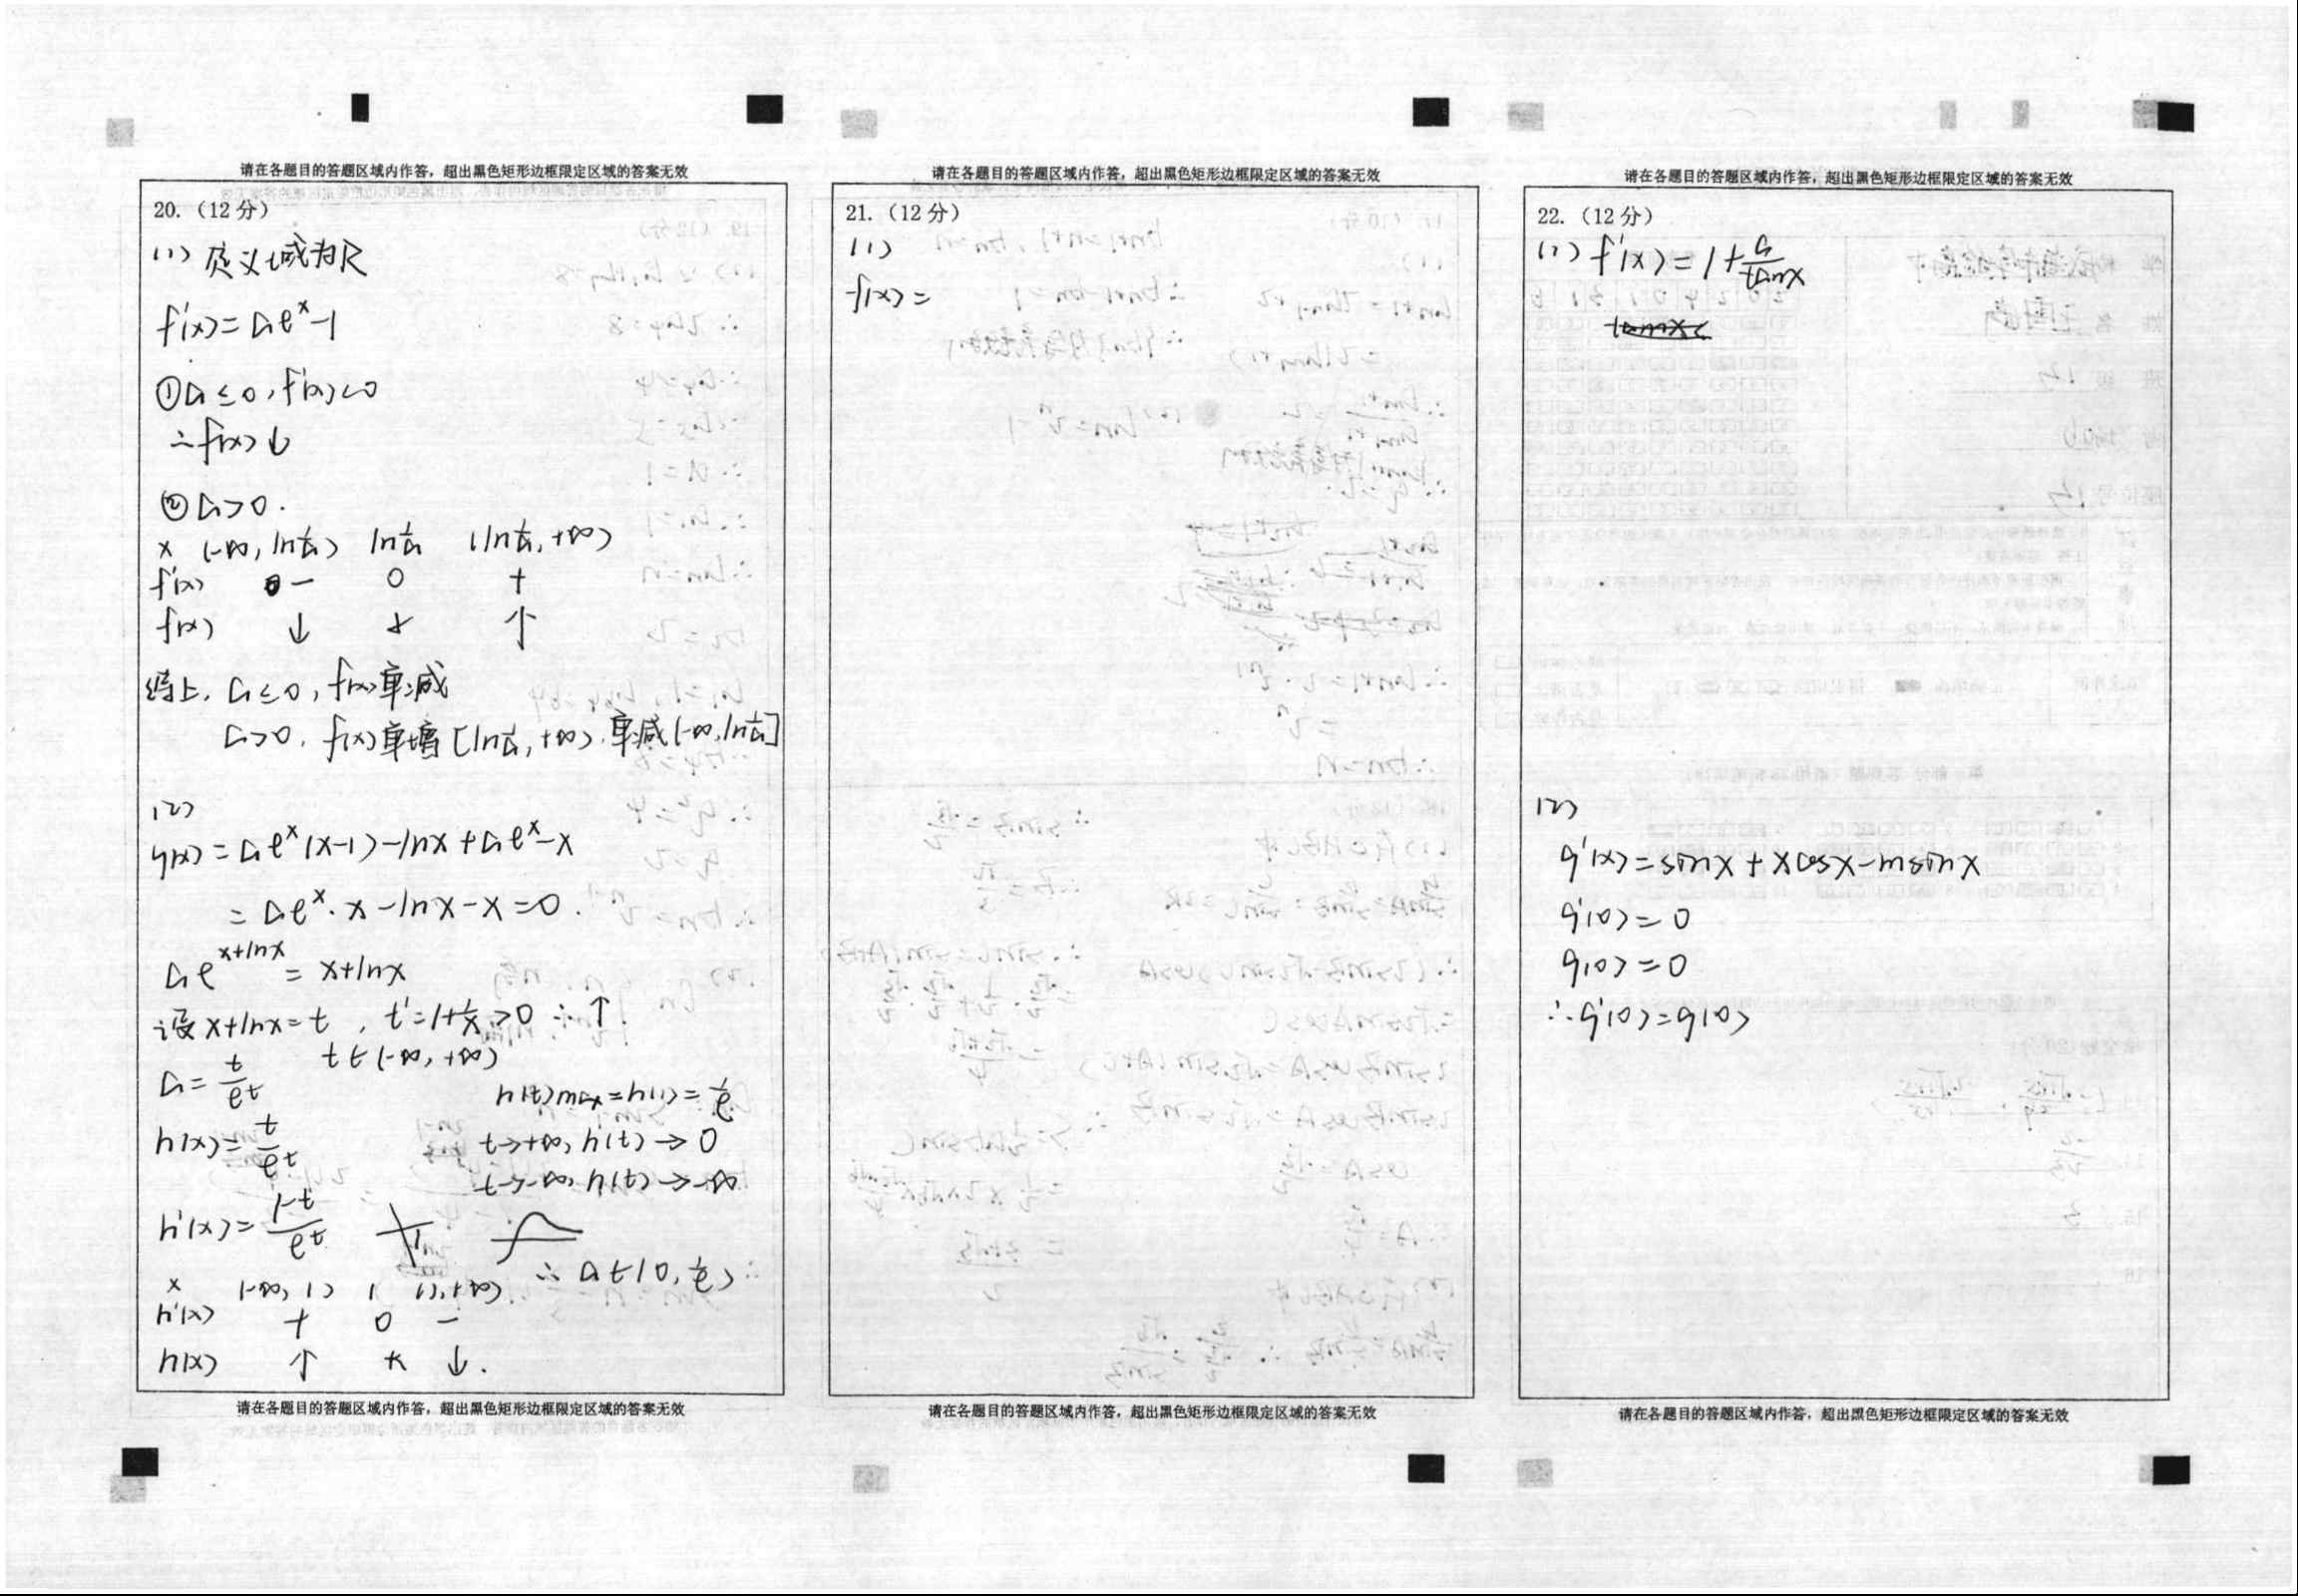 请在各题目的答题区域内作答，超出黑色矩形边框限定区域的答案无效
20.（12 分）
(1) 定义域为R
f'(x)=ae^x-1
①a≤0, f'(x)<0
∴f(x)↓
②a>0.
x (-∞, ln1/a) ln1/a (ln1/a, +∞)
f'(x) - 0 +
f(x) ↓ ↑
综上. a≤0, f(x)单减
a>0. f(x)单增[ln1/a, +∞). 单减(-∞, ln1/a]
(2)
g(x)=ae^x(x-1)-lnx+ae^x-x
=ae^x·x-lnx-x=0.
ae^{x+lnx}=x+lnx
设x+lnx=t, t'=1+1/x>0 ∴↑
t∈(-∞, +∞)
a=t/e^t
h(x)=t/e^t
h'(x)=(1-t)/e^t
x (-∞, 1) 1 (1, +∞)
h'(x) + 0 -
h(x) ↑ ↓.
h(t)max=h(1)=1/e
t→+∞, h(t)→0
t→-∞, h(t)→-∞
∴a∈(0, 1/e)
请在各题目的答题区域内作答，超出黑色矩形边框限定区域的答案无效
请在各题目的答题区域内作答，超出黑色矩形边框限定区域的答案无效
21.（12 分）
(1)
f(x)=
请在各题目的答题区域内作答，超出黑色矩形边框限定区域的答案无效
请在各题目的答题区域内作答，超出黑色矩形边框限定区域的答案无效
22.（12 分）
(1) f'(x)=1+a/tanx
(2)
g'(x)=sinx+xcosx-msinx
g'(0)=0
g(0)=0
∴g'(0)=g(0)
请在各题目的答题区域内作答，超出黑色矩形边框限定区域的答案无效